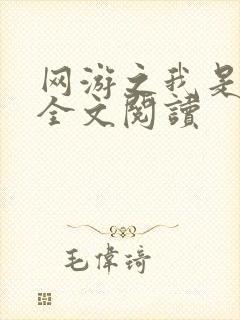 网游之我是
全文閱讀
毛偉琦